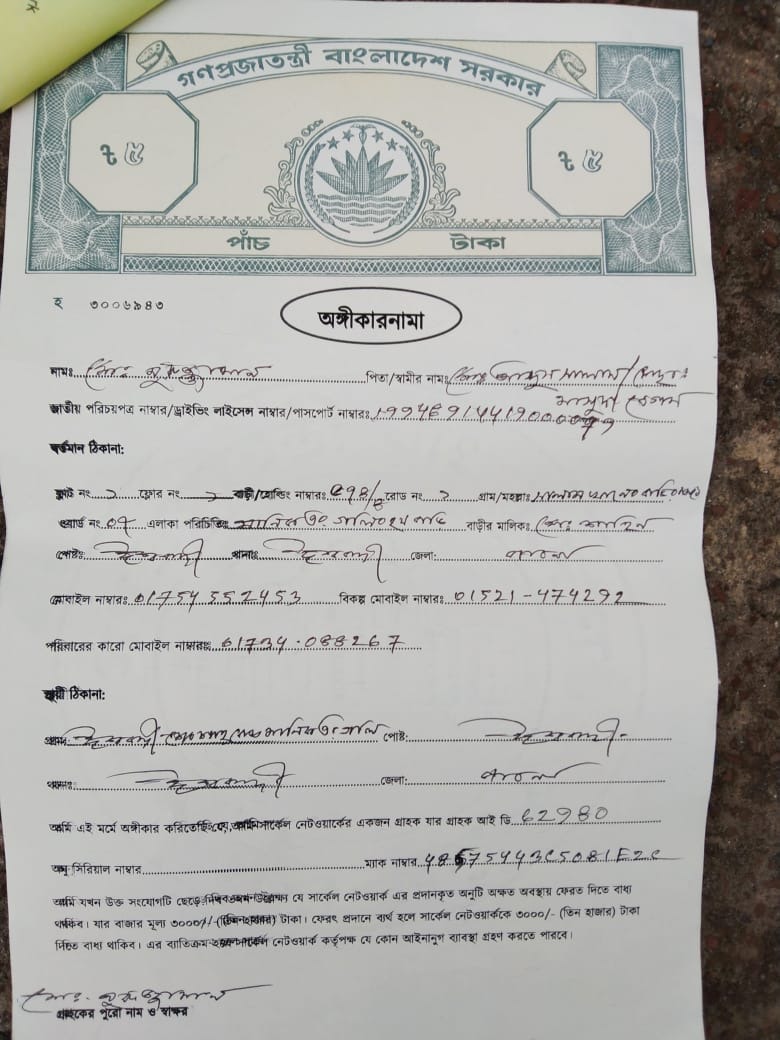 গণপ্রজাতন্ত্রী বাংলাদেশ সরকার
৳ ৫ ৳ ৫
পাঁচ টাকা
হ ৩০০৬৯৪৩
অঙ্গীকারনামা
নামঃ মোঃ নুরুজ্জামান পিতা/স্বামীর নামঃ মোঃ
জাতীয় পরিচয়পত্র নাম্বার/ড্রাইভিং লাইসেন্স নাম্বার/পাসপোর্ট নাম্বারঃ
বর্তমান ঠিকানা:
ফ্লাট নং ফ্লোর নং বাড়ী/হোল্ডিং নাম্বারঃ রোড নং গ্রাম/মহল্লাঃ
ওয়ার্ড নং 07 এলাকা পরিচিতিঃ বাড়ীর মালিকঃ মোঃ
পোষ্টঃ ঈশ্বরদী থানাঃ ঈশ্বরদী জেলা: পাবনা
মোবাইল নাম্বারঃ 01754 552453 বিকল্প মোবাইল নাম্বারঃ 01521-474292
পরিবারের কারো মোবাইল নাম্বারঃ 01734-088267
স্থায়ী ঠিকানা:
গ্রামঃ ঈশ্বরদী পোষ্ট: ঈশ্বরদী
থানাঃ ঈশ্বরদী জেলা: পাবনা
আমি এই মর্মে অঙ্গীকার করিতেছি যে, আমি সার্কেল নেটওয়ার্কের একজন গ্রাহক যার গ্রাহক আই ডি 62980
অনু সিরিয়াল নাম্বার ম্যাক নাম্বার
আমি যখন উক্ত সংযোগটি ছেড়ে দিব তখন যে সার্কেল নেটওয়ার্ক এর প্রদানকৃত অনুটি অক্ষত অবস্থায় ফেরত দিতে বাধ্য
থাকিব। যার বাজার মূল্য ৩০০০/- (তিন হাজার) টাকা। ফেরৎ প্রদানে ব্যর্থ হলে সার্কেল নেটওয়ার্ককে ৩০০০/- (তিন হাজার) টাকা
দিতে বাধ্য থাকিব। এর ব্যতিক্রম হলে সার্কেল নেটওয়ার্ক কর্তৃপক্ষ যে কোন আইনানুগ ব্যাবস্থা গ্রহণ করতে পারবে।
মোঃ নুরুজ্জামান
গ্রাহকের পুরো নাম ও স্বাক্ষর